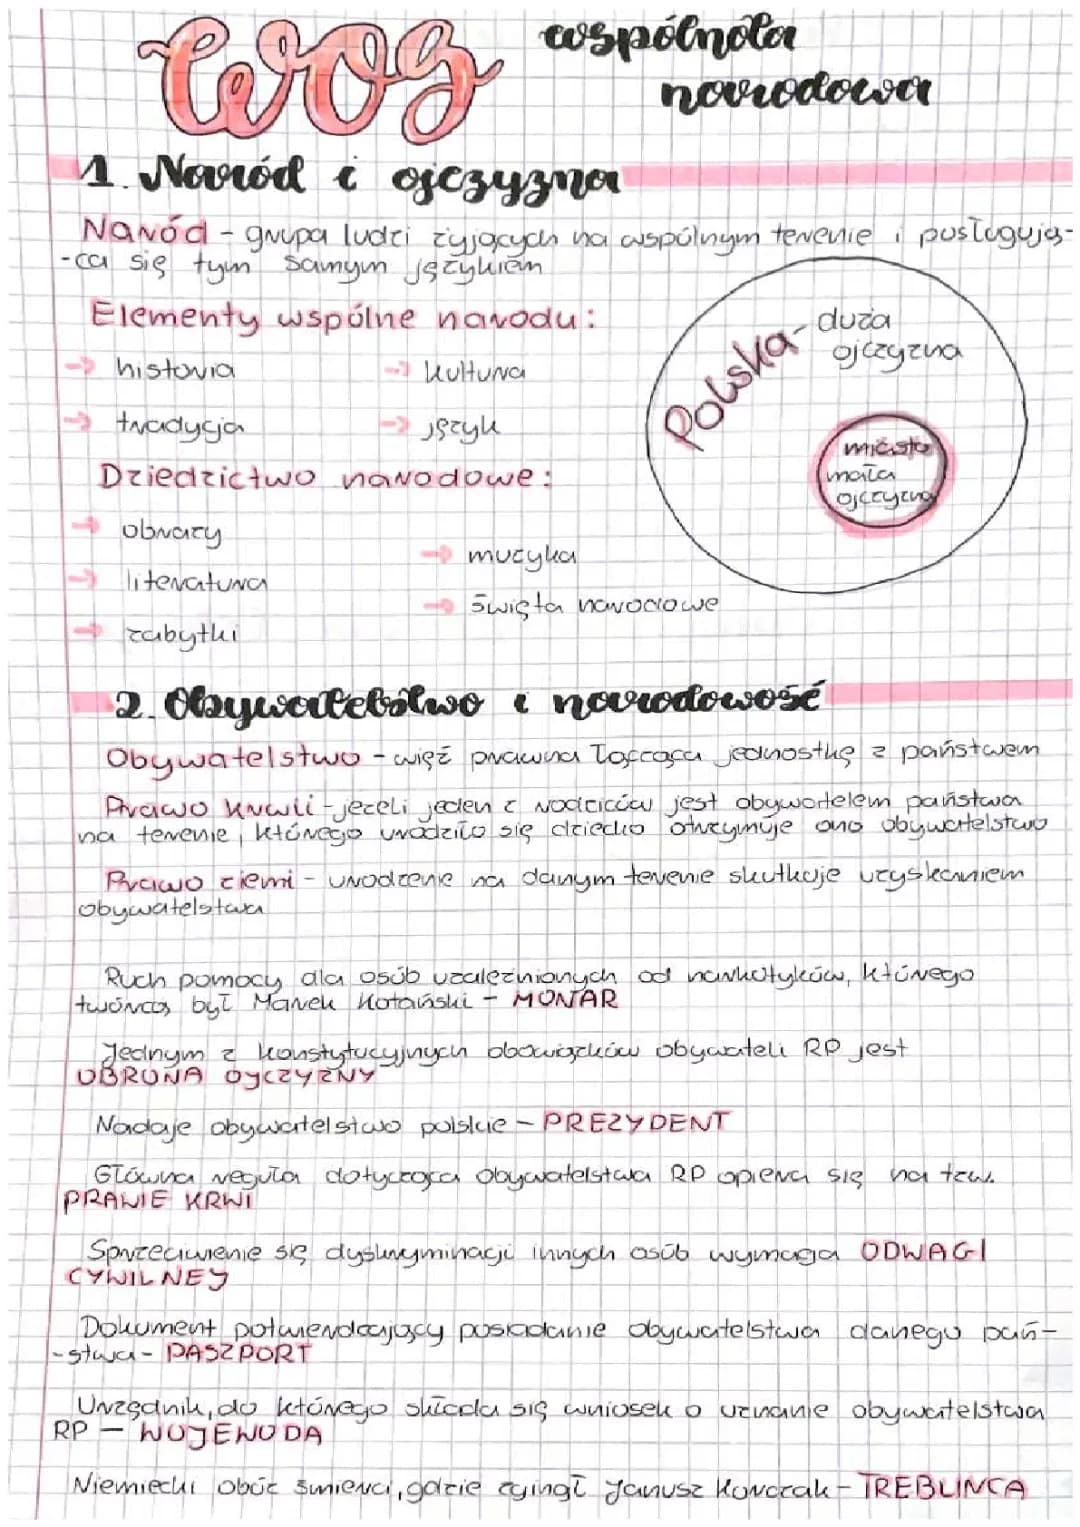 wos wspólnota
narodowa
1. Naród i ojczyzna
Naród - grupa ludzi żyjących na wspólnym terenie i posługują-
-ca się tym samym językiem
Elementy wspólne narodu:
→ historia → kultura
→ tradycja → język
Polska - duża
ojczyzna
miasto
mała
ojczyzna
Dziedzictwo narodowe:
→ obrazy
→ muzyka
→ literatura
→ święta narodowe
→ zabytki
2. Obywatelstwo i narodowość
Obywatelstwo - więź prawna łącząca jednostkę z państwem
Prawo krwi - jeżeli jeden z rodziców jest obywatelem państwa
na terenie, którego urodziło się dziecko otrzymuje ono obywatelstwo
Prawo ziemi - urodzenie na danym terenie skutkuje uzyskaniem
obywatelstwa
Ruch pomocy dla osób uzależnionych od narkotyków, którego
twórcą był Marek Kotański - MONAR
Jednym z konstytucyjnych obowiązków obywateli RP jest
OBRONA OJCZYZNY
Nadaje obywatelstwo polskie - PREZYDENT
Główna reguła dotycząca obywatelstwa RP opiera się na tzw.
PRAWIE KRWI
Sprzeciwienie się dyskryminacji innych osób wymaga ODWAGI
CYWILNEJ
Dokument potwierdzający posiadanie obywatelstwa danego pań-
-stwa - PASZPORT
Urzędnik, do którego składa się wniosek o uznanie obywatelstwa
RP - WOJEWODA
Niemiecki obóz śmierci, gdzie zginął Janusz Korczak - TREBLINCA